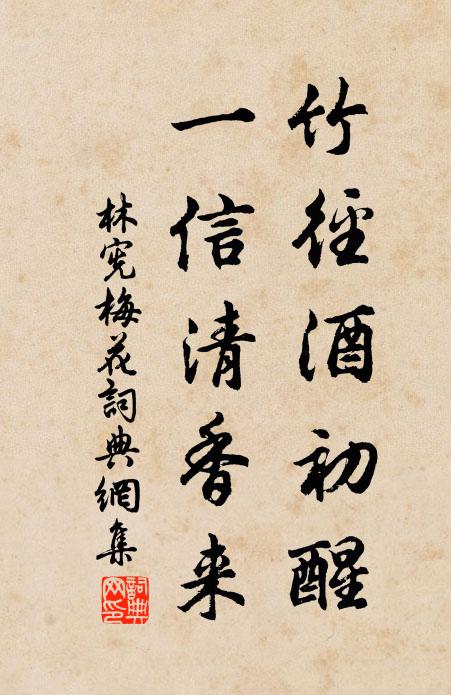 竹徑酒初醒
一信清香来
林宪梅花詞典網集
詞典網印